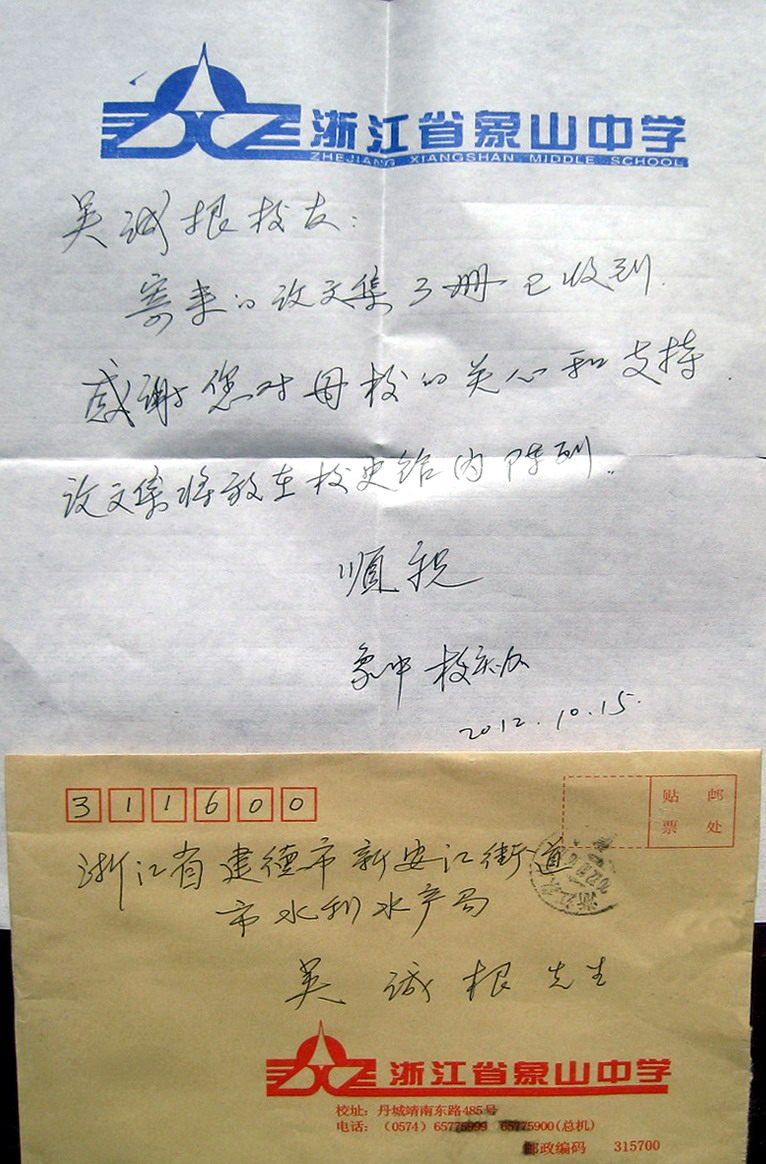 浙江省象山中学
ZHEJIANG XIANGSHAN MIDDLE SCHOOL
吴诚根校友:
寄来的论文集3册已收到.
感谢您对母校的关心和支持.
论文集将放在校史馆内陈列.
顺祝
象中校庆办
2012.10.15.
311600
贴 邮
票 处
浙江省建德市新安江街道
市水利水产局
吴诚根先生
浙江省象山中学
校址：丹城靖南东路485号
电话：(0574) 65775999 65775900(总机)
邮政编码 315700